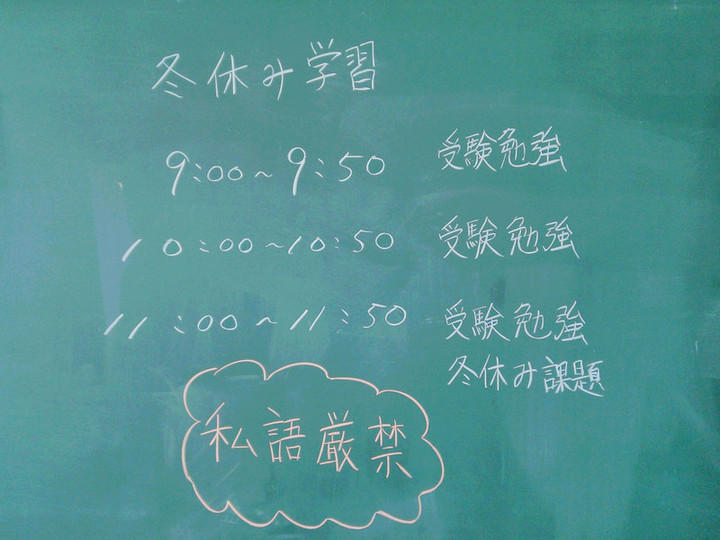 冬休み学習
9:00~9:50 受験勉強
10:00~10:50 受験勉強
11:00~11:50 受験勉強
冬休み課題
私語厳禁